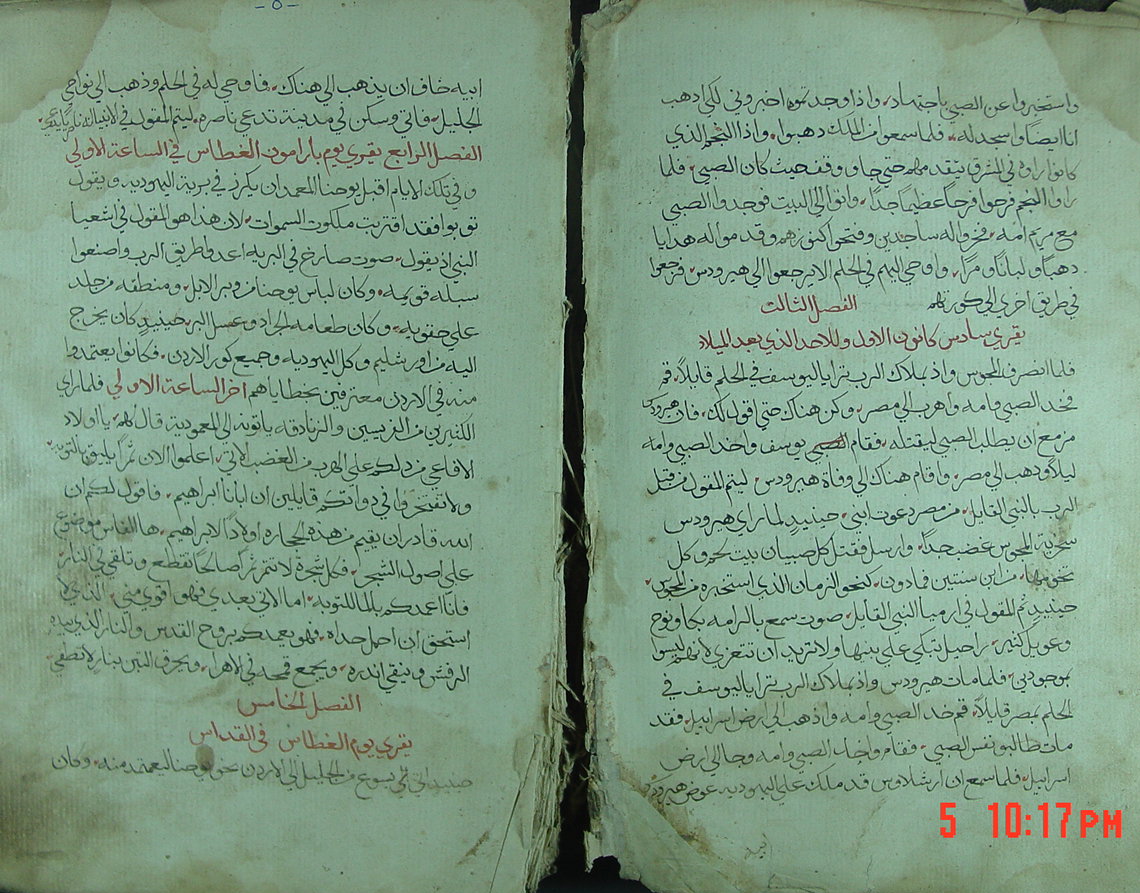 واستخبروا عن الصبي باجتهاد واذا وجدتموه اخبروني لكي اذهب
انا ايضا واسجد له فلما سمعوا من الملك ذهبوا واذا النجم الذي
كانوا راوه في المشرق يتقدمهم حتي جا ووقف حيث كان الصبي فلما
راوا النجم فرحوا فرحا عظيما جدا واتوا الي البيت فوجدوا الصبي
مع مريم امه فخروا له ساجدين وفتحوا كنوزهم وقدموا له هدايا
ذهبا ولبانا ومرا واوحي اليهم في الحلم الا يرجعوا الي هيرودس فرجعوا
في طريق اخري الي كورتهم الفصل الثالث
يقري سادس كانون الاول وللاحد الذي بعد الميلاد
فلما انصرف المجوس واذ بملاك الرب ترايا ليوسف في الحلم قايلا قم
فخد الصبي وامه واهرب الي مصر وكن هناك حتي اقول لك فان هيرودس
مزمع ان يطلب الصبي ليقتله فقام يوسف واخد الصبي وامه
ليلا وذهب الي مصر واقام هناك الي وفاة هيرودس ليتم المقول من قبل
الرب بالنبي القايل من مصر دعوت ابني حينيد لما راي هيرودس
سخرية المجوس غضب جدا وارسل فقتل كل صبيان بيت لحم وكل
تخومها من ابن سنتين فما دون كنحو الزمان الذي استخبره من المجوس
حينيد تم المقول في ارميا النبي القايل صوت سمع بالرامه بكا ونوح
وعويل كثير راحيل تبكي علي بنيها ولا تريد ان تتعزي لانهم ليسوا
بموجودين فلما مات هيرودس واذ بملاك الرب ترايا ليوسف في
الحلم بمصر قايلا قم خد الصبي وامه واذهب الي ارض اسراييل فقد
مات طالبو نفس الصبي فقام واخد الصبي وامه وجا الي ارض
اسراييل فلما سمع ان ارشلاوس قد ملك علي اليهوديه عوض هيرودس
- ٥ -
ابيه خاف ان يذهب الي هناك فاوحي له في الحلم وذهب الي نواحي
الجليل فاتي وسكن في مدينة تدعي ناصره ليتم المقول في الانبيا انه
الفصل الرابع يقري يوم بارامون الغطاس في الساعة الاولي
وفي تلك الايام اقبل يوحنا المعمدان يكرز في برية اليهوديه ويقول
توبوا فقد اقتربت ملكوت السموات لان هذا هو المقول في اشعيا
النبي اذ يقول صوت صارخ في البريه اعدوا طريق الرب واصنعوا
سبله قويمه وكان لباس يوحنا من وبر الابل ومنطقه من جلد
علي حقويه وكان طعامه الجراد وعسل البر حينيد كان يخرج
اليه من اورشليم وكل اليهوديه وجميع كور الاردن فكانوا يعتمدوا
منه في الاردن معترفين بخطاياهم اخر الساعة الاولي فلما راي
الكثيرين من الفريسيين والزنادقه ياتون الي المعمودية قال لهم يا اولاد
الافاعي من دلكم علي الهرب من الغضب الاتي اعملوا الان ثمرا يليق بالتوبه
ولا تفتخروا في ذواتكم قايلين ان ابانا ابراهيم فاقول لكم ان
الله قادر ان يقيم من هذه الحجاره اولادا لابراهيم ها الفاس موضوع
علي اصول الشجر فكل شجرة لا تثمر ثمرا صالحا تقطع وتلقي في النار
فانا اعمدكم بالما للتوبه اما الاتي بعدي فهو اقوي مني الذي لا
استحق ان احمل حداه فهو يعمدكم بروح القدس والنار الذي بيده
الرفش وينقي اندره ويجمع قمحه في الاهرا ويحرق التبن بنار لا تطفي
الفصل الخامس
يقري يوم الغطاس في القداس
حينيد اتي يسوع من الجليل الي الاردن نحو يوحنا ليعتمد منه وكان
5 10:17PM